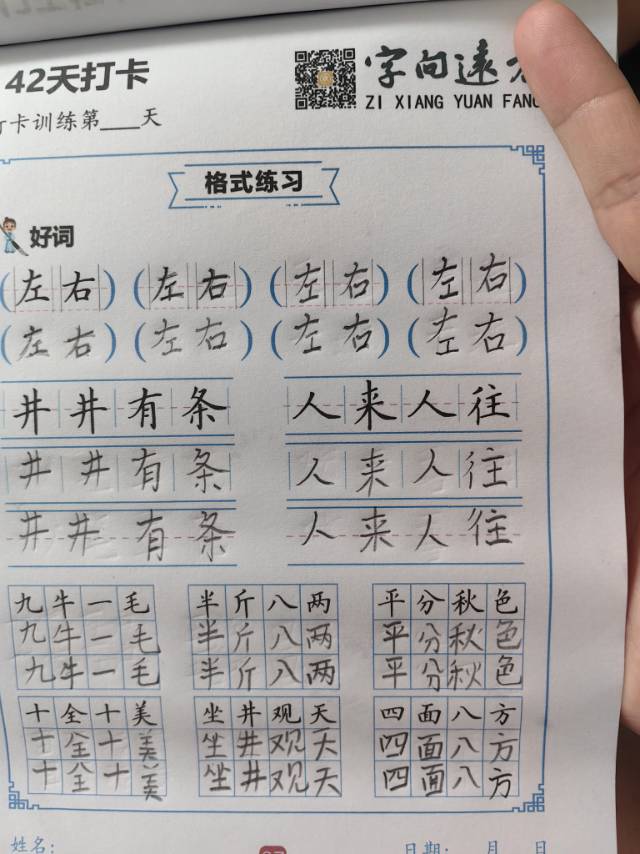 42天打卡
字向遠方
ZI XIANG YUAN FANG
打卡训练第___天
格式练习
好词
(左右) (左右) (左右) (左右)
(左右) (左右) (左右) (左右)
井井有条 人来人往
井井有条 人来人往
井井有条 人来人往
九牛一毛 半斤八两 平分秋色
九牛一毛 半斤八两 平分秋色
九牛一毛 半斤八两 平分秋色
十全十美 坐井观天 四面八方
十全十美 坐井观天 四面八方
十全十美 坐井观天 四面八方
姓名: 日期: 月 日